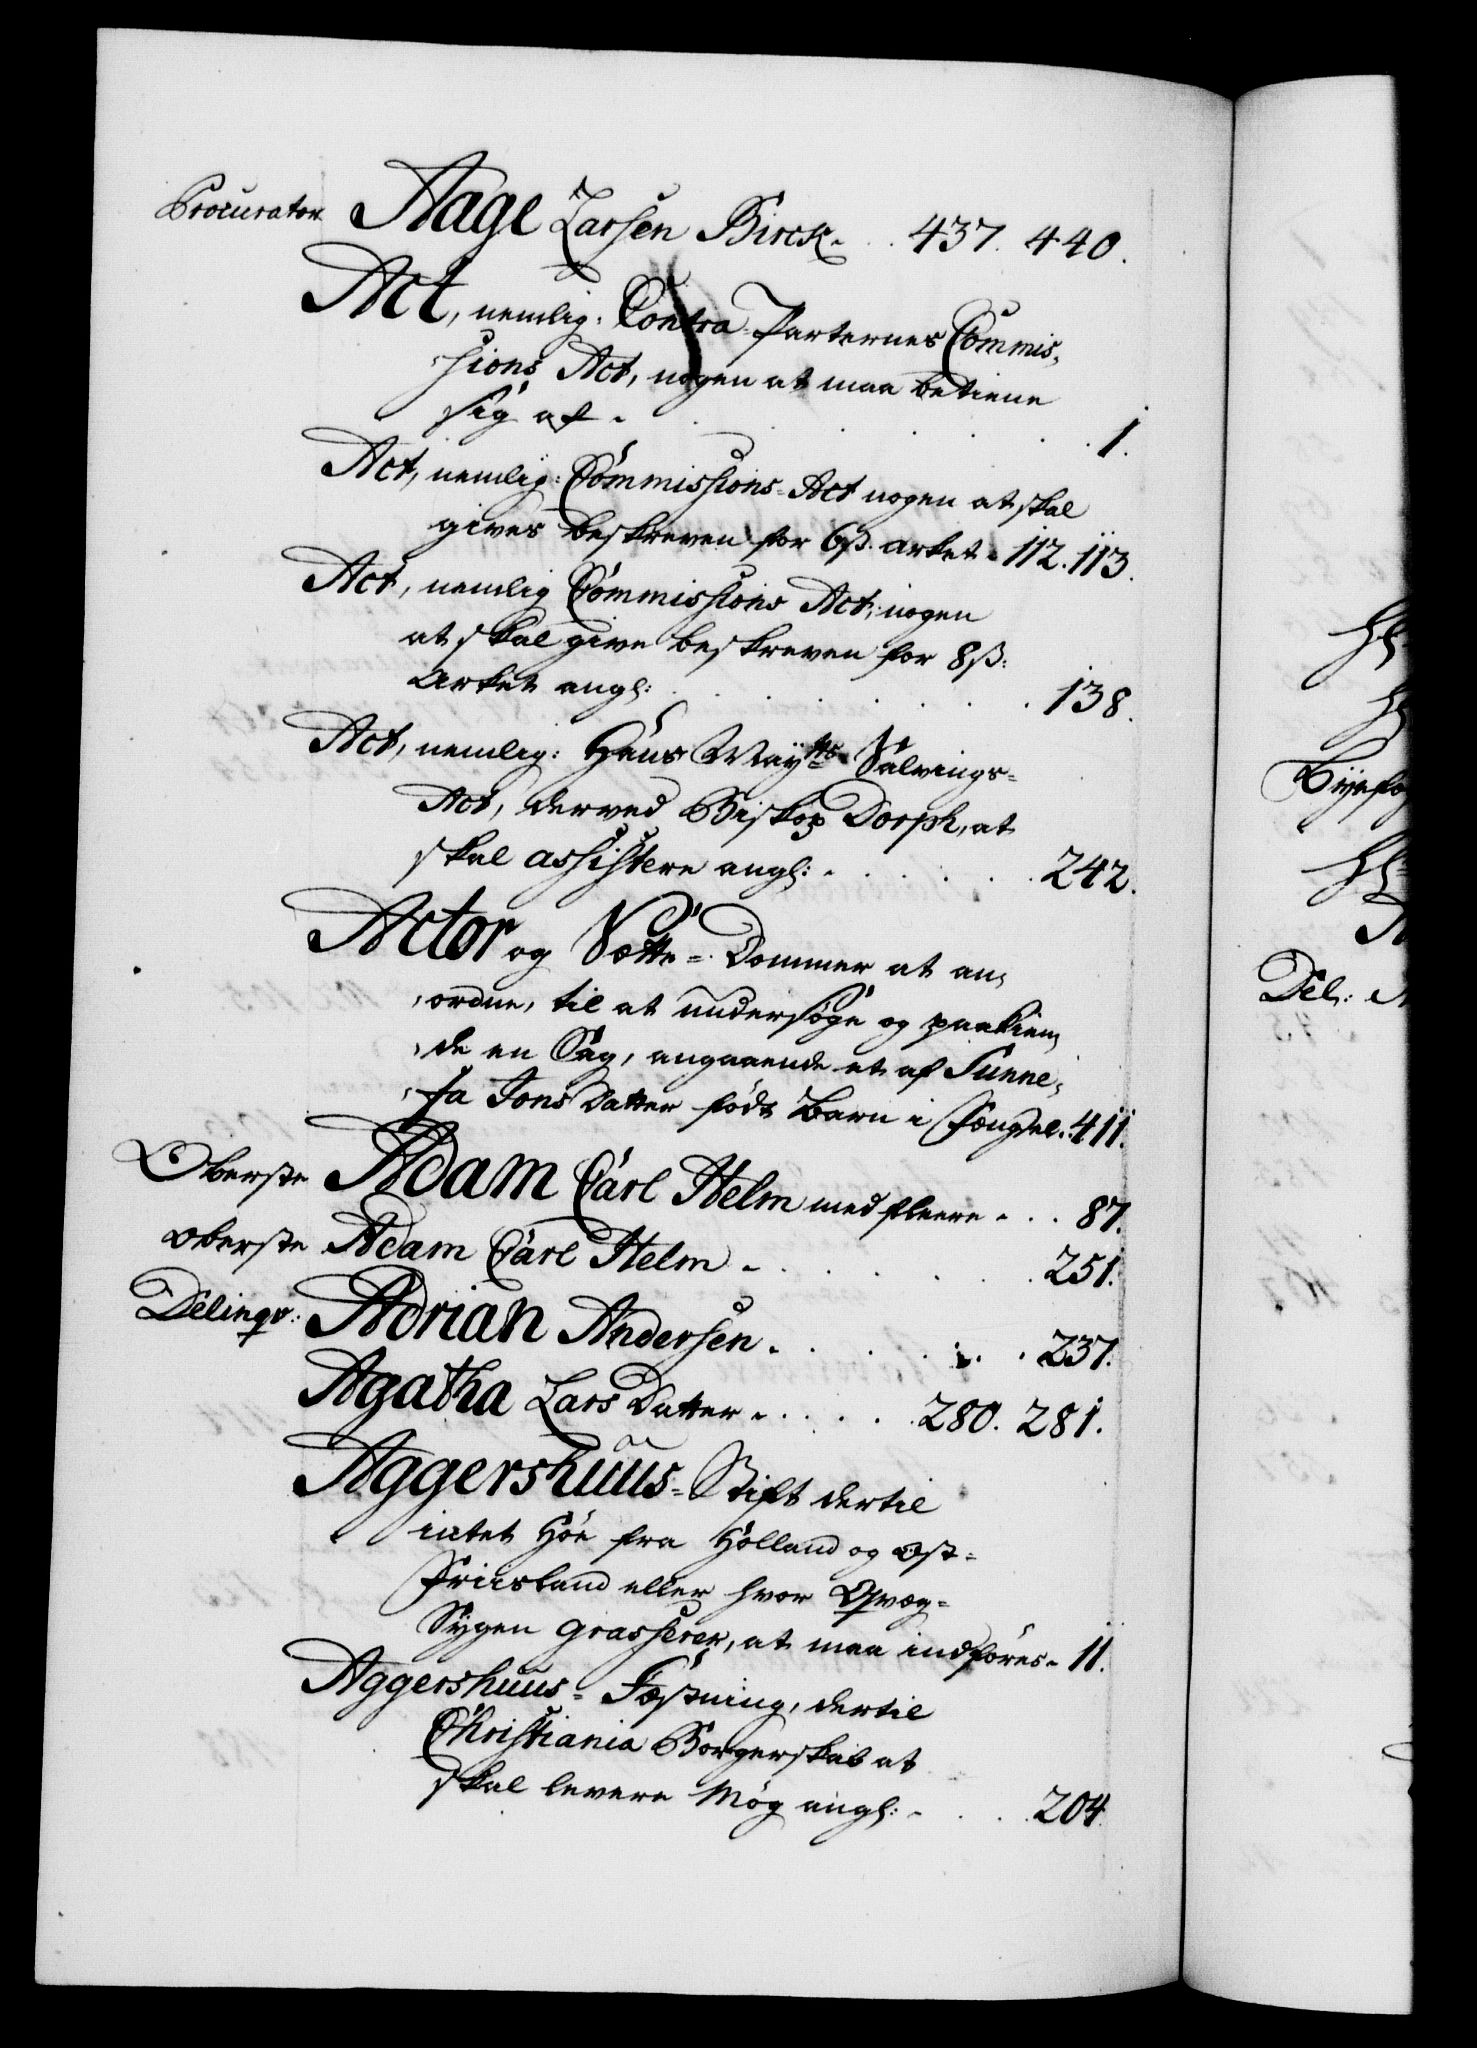 Procurator Aage Larsen Birck. . 437. 440.
Act, nemlig: Contra-Parternes Commis-
sions Act, nogen at maa betiene
sig af. . . . . . . 1.
Act, nemlig: Commissions-Act nogen at skal
gives beskreven for 6ß. arket. 112. 113.
Act, nemlig Commissions Act, nogen
at skal give beskreven for 8ß:
Arket angl: . . . . . . 138.
Act, nemlig: Hans Mayts Salvings-
Act, derved Biskop Dorph, at
skal assistere angl: . . . . . 242.
Actor og Sætte-Dommer at an-
ordne, til at undersøge og paakien-
de en Sag, angaaende et af Sunne-
fa Jons Datter födt Barn i Fængsel. 411.
Oberste Adam Carl Helm med fleere . . . 87.
Oberste Adam Carl Helm . . . . . . 251.
Delinqv: Adrian Andersen . . . . . . 237.
Agatha Lars Datter . . . . . 280. 281.
Aggershuus-Stift dertil
intet Höe fra Holland og Ost-
Friisland eller hvor Qvæg-
Sygen grasserer, at maa indföres. 11.
Aggershuus-Fæstning, dertil
Christiania Borgerskab at
skal levere Møg angl: . . . . 204.
Byefo
Del: